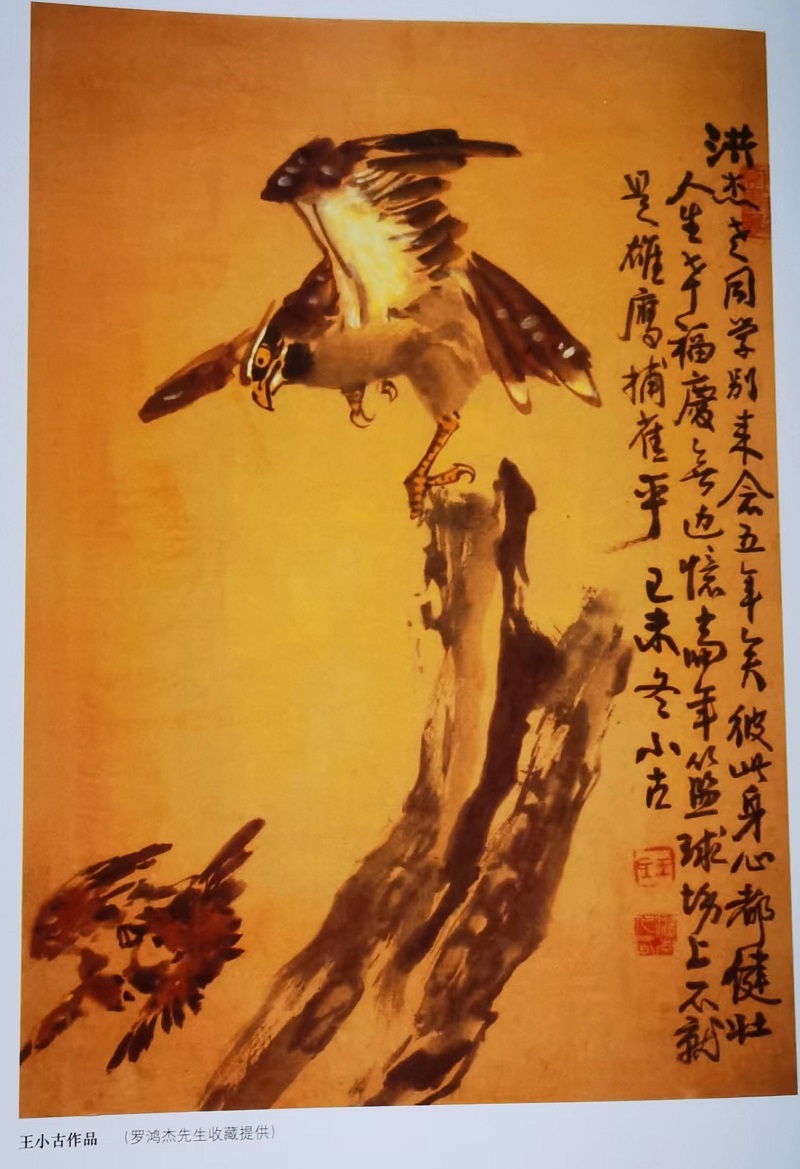 洪杰老同学别来念五年矣彼此身心都健壮
人生幸福慶无边憶當年籃球場上不就
是雄鷹捕雀乎
己未冬小古
王小古作品
(罗鸿杰先生收藏提供)